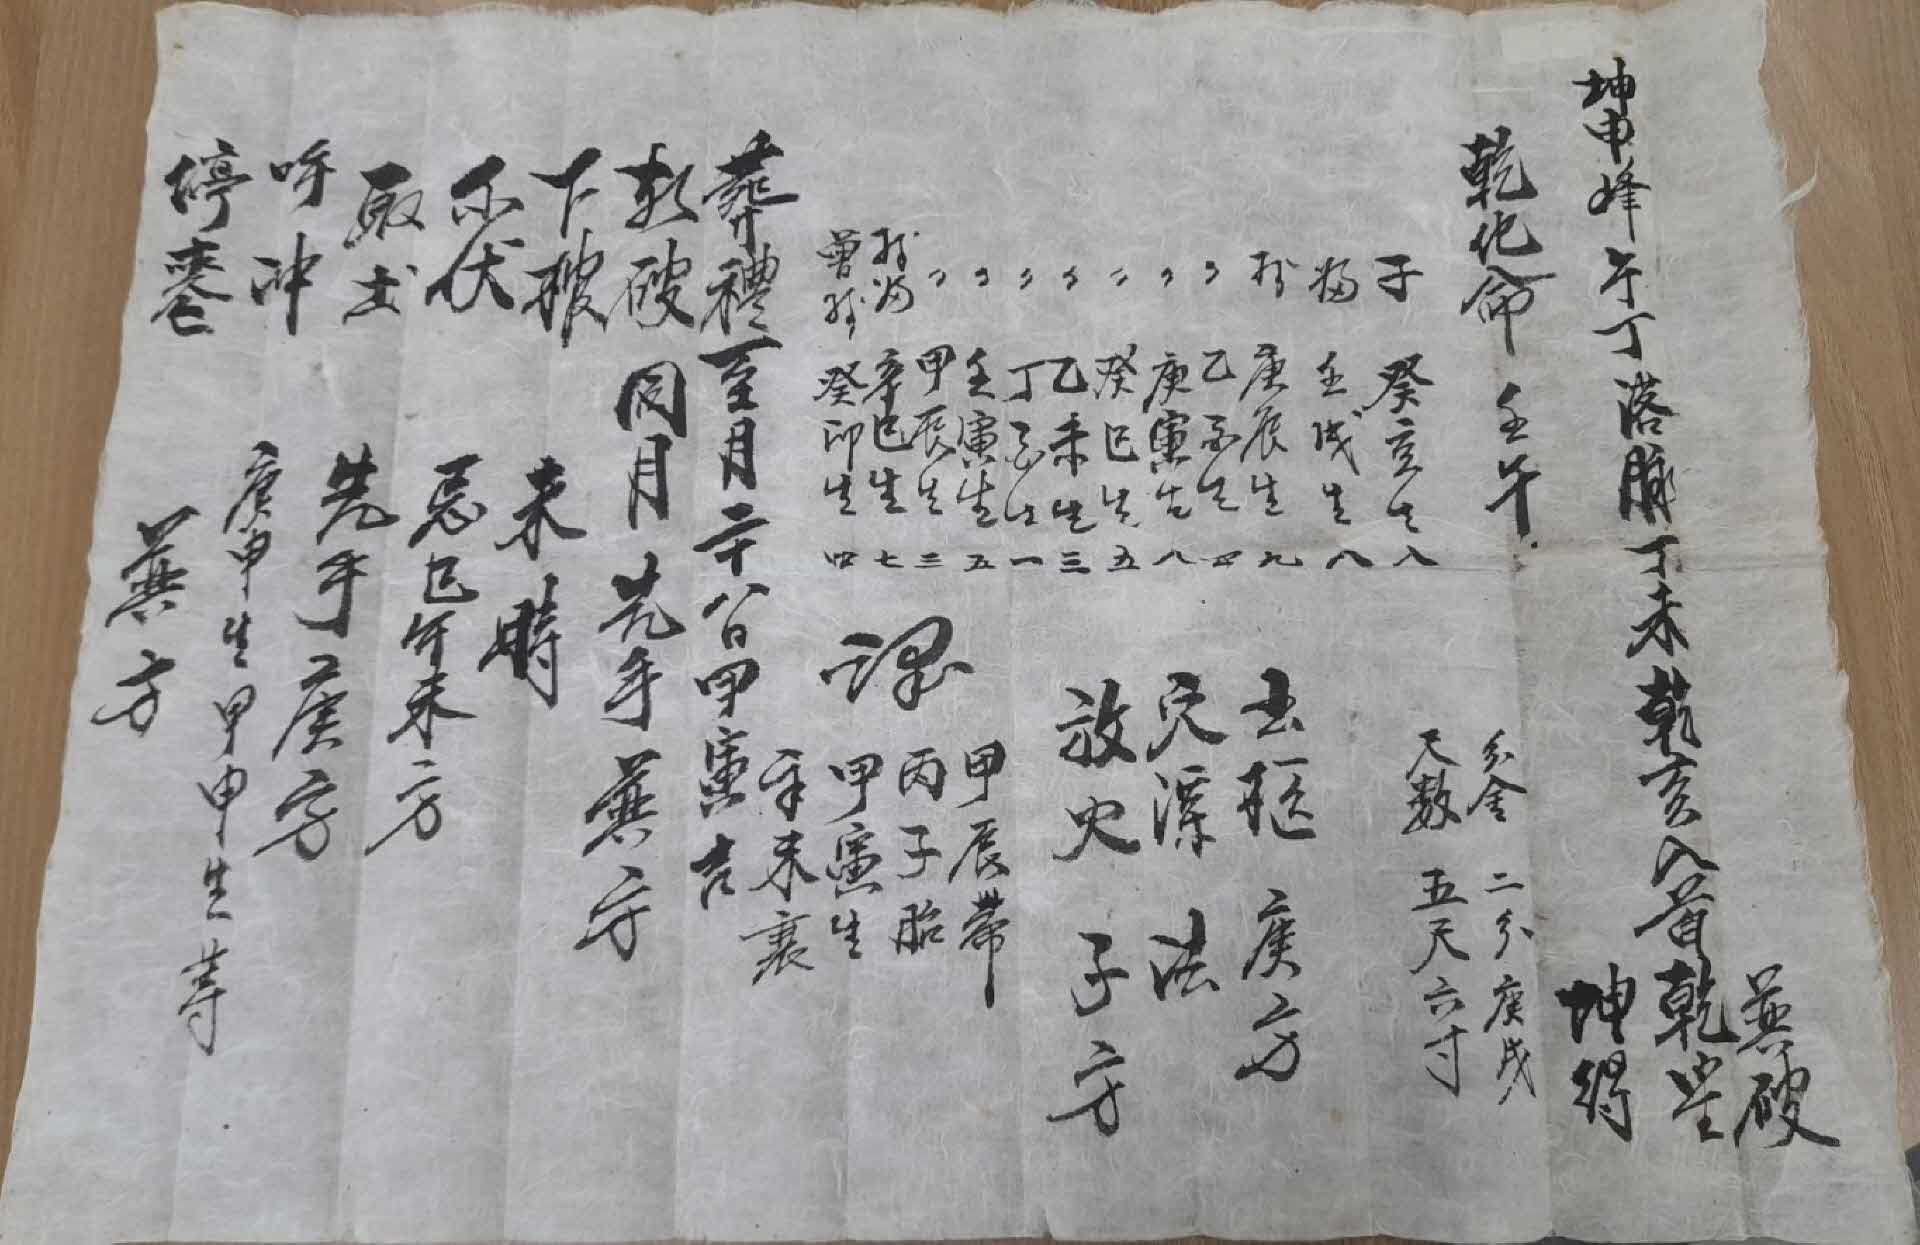 坤申峰午丁落脈丁未乾亥入首乾坐
巽破
坤得
乾化命 壬午
分金 二分 庚戌
尺數 五尺六寸
子 癸亥生 八
婦 壬戌生 八
孫 庚辰生 九
〃 乙酉生 四
〃 庚寅生 八
〃 癸巳生 五
〃 乙未生 三
〃 丁酉生 一
〃 壬寅生 五
〃 甲辰生 三
孫婦 辛巳生 七
曾孫 癸卯生 四
出柩 庚方
穴深 法
放火 子方
課
甲辰帶
丙子胎
甲寅生
辛未衰
葬禮 至月二十八日甲寅吉
斬破 同月 先手巽方
下棺 未時
不伏 忌巳午未方
取土 先手庚方
呼冲 庚申生甲申生等
停喪 巽方